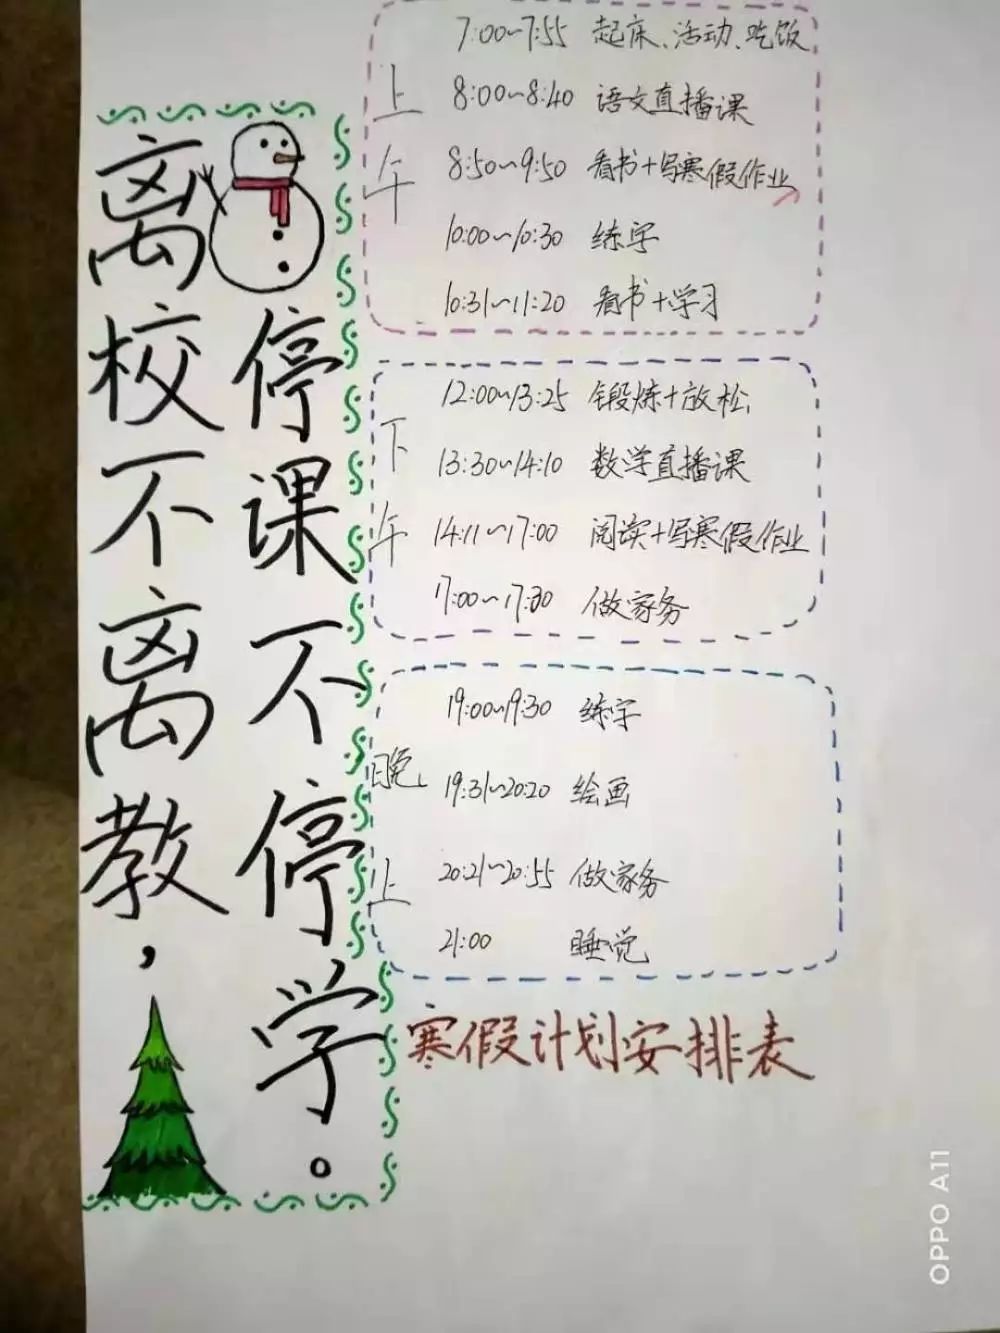 离校不离教，
停课不停学。
上午
7:00~7:55 起床、活动、吃饭
8:00~8:40 语文直播课
8:50~9:50 看书+写寒假作业
10:00~10:30 练字
10:31~11:20 看书+学习
下午
12:00~13:25 锻炼+放松
13:30~14:10 数学直播课
14:11~17:00 阅读+写寒假作业
17:00~17:30 做家务
晚上
19:00~19:30 练字
19:31~20:20 绘画
20:21~20:55 做家务
21:00 睡觉
寒假计划安排表
OPPO A11